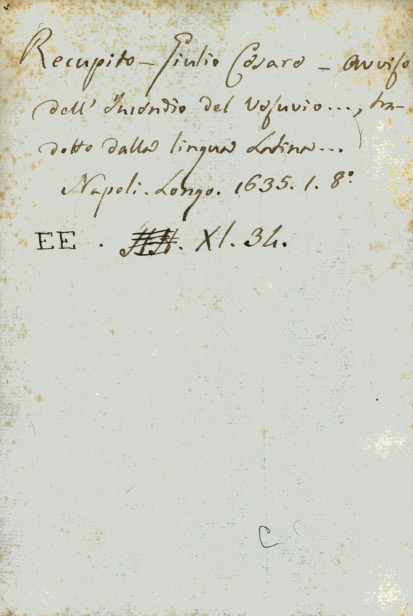 Recupito – Giulio Cesare – avviso
dell' Incendio del Vesuvio..., tra-
dotto dalla lingua Latina...
Napoli. Longo. 1635. 1. 8º.
EE . XI. 34.
C